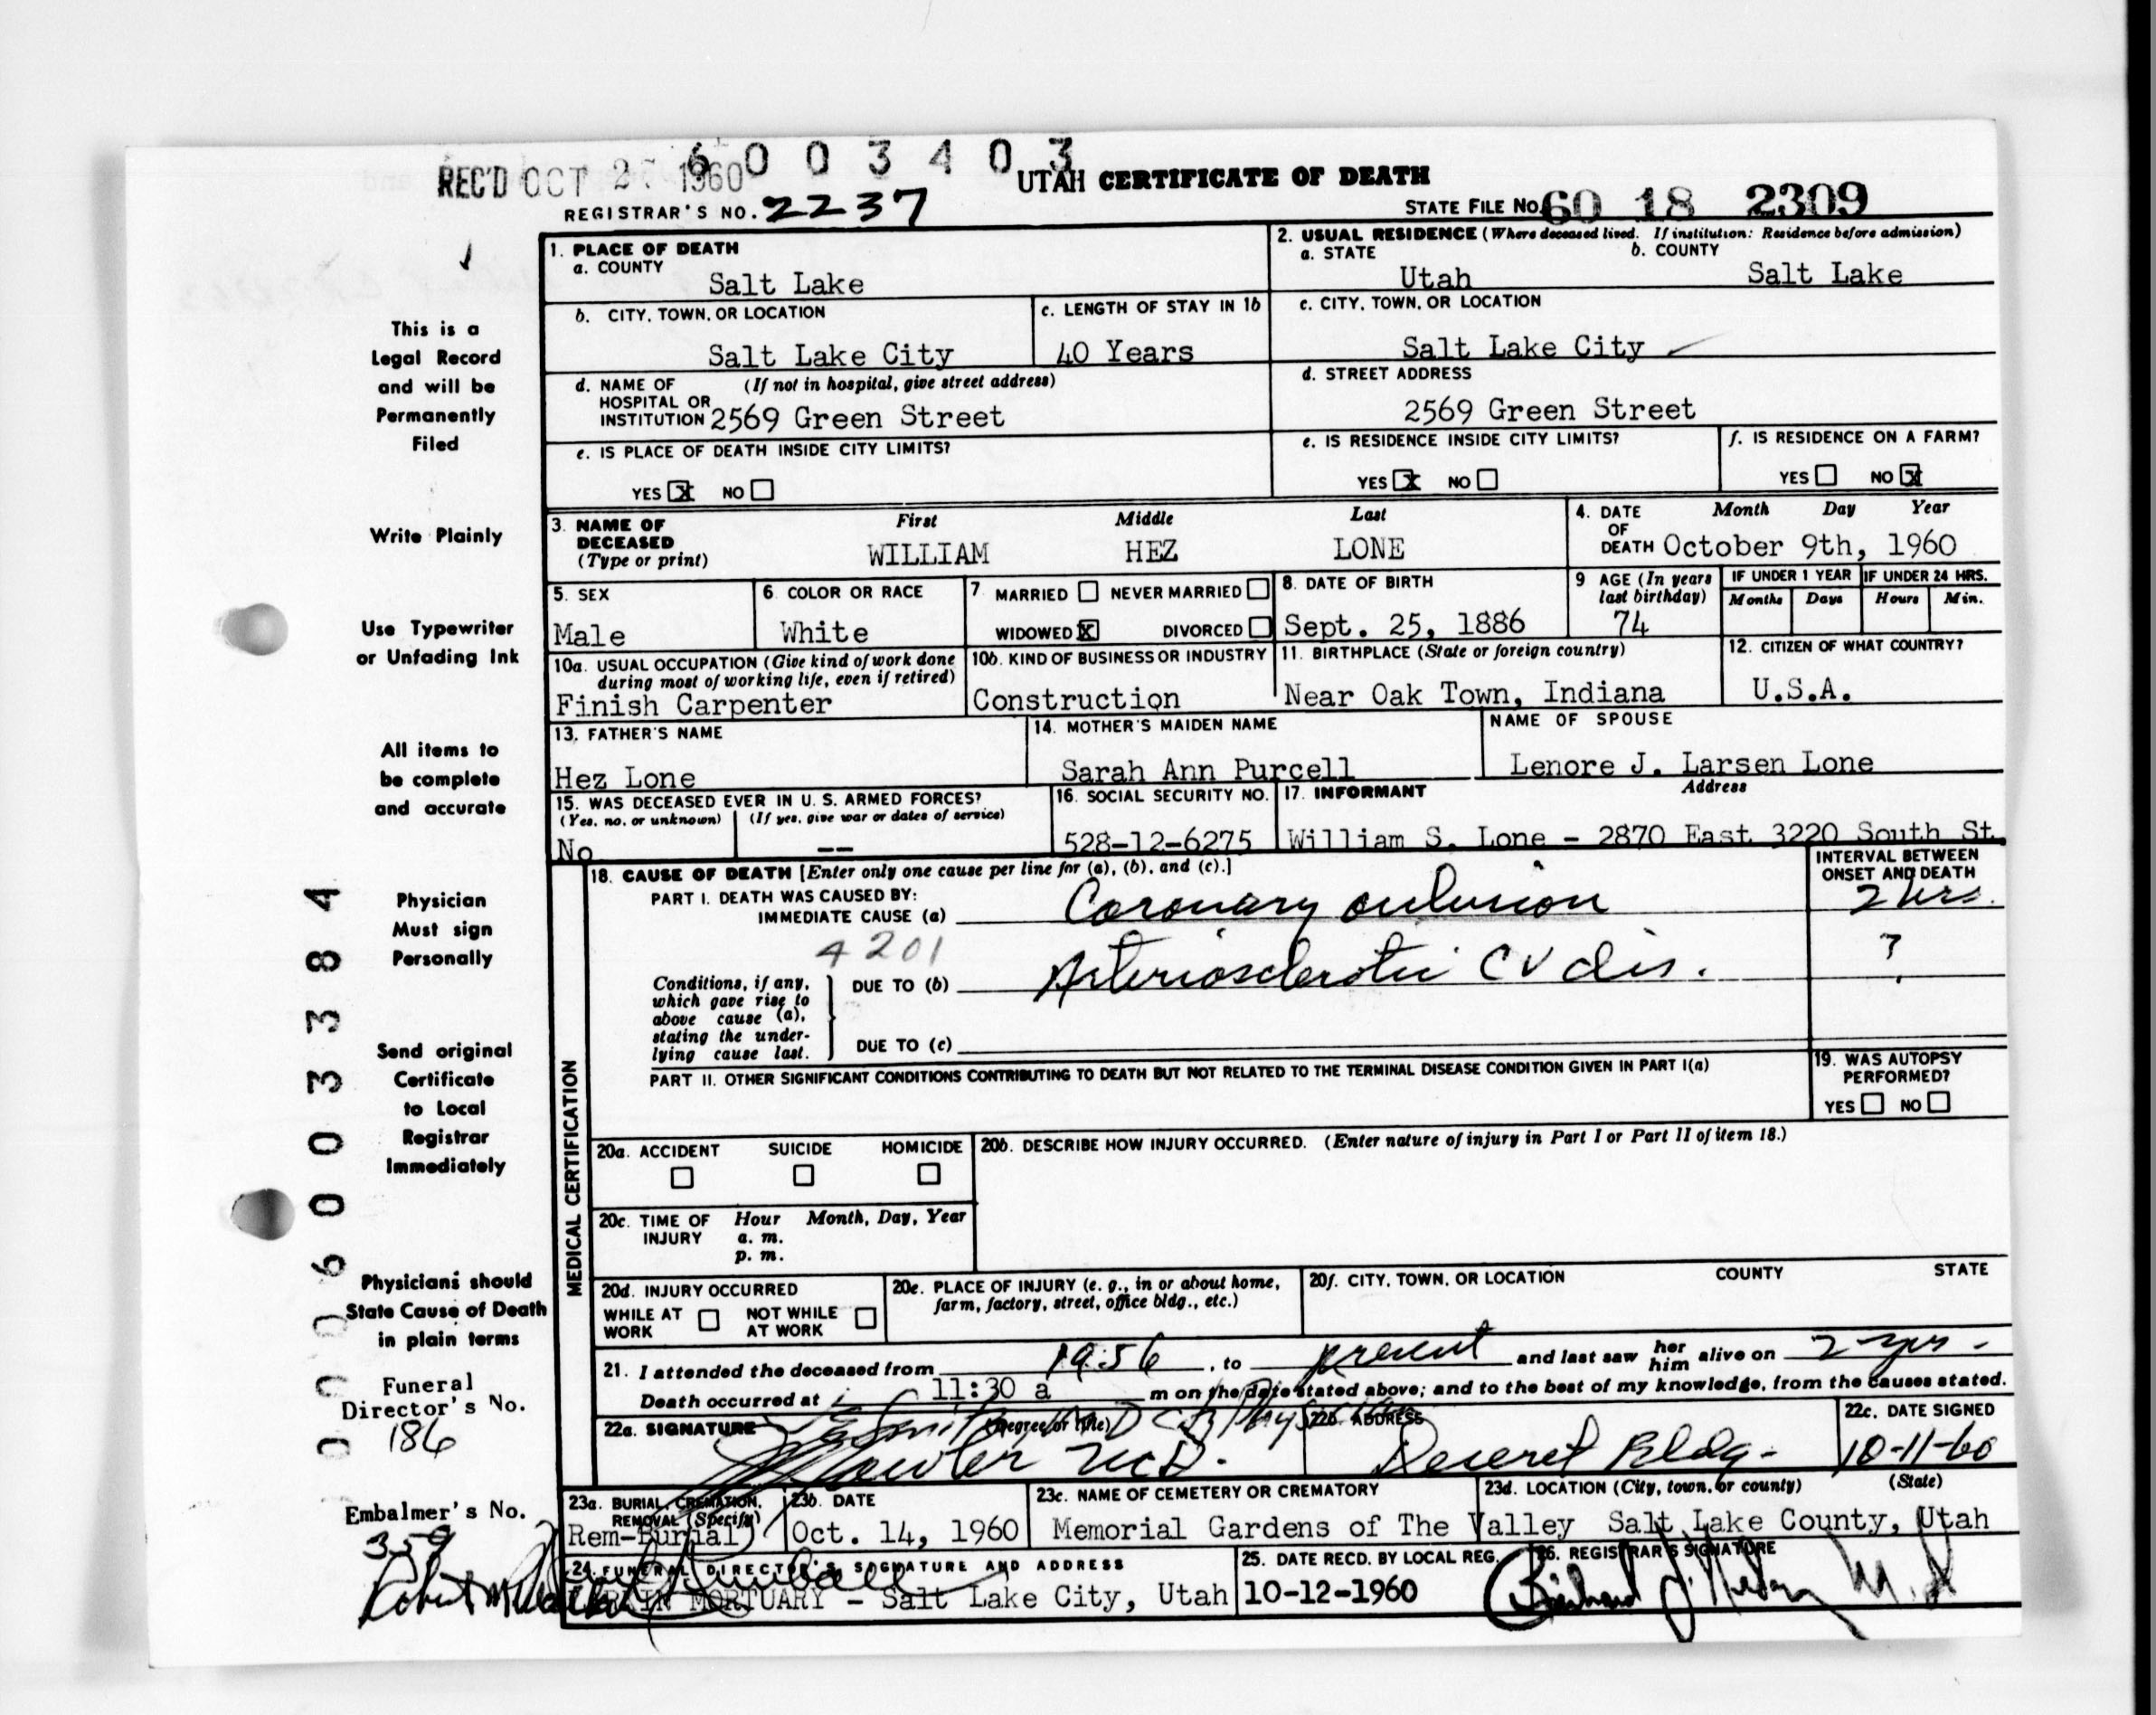 6 0 0 3 4 0 3
REC'D OCT 2 1960
UTAH CERTIFICATE OF DEATH
REGISTRAR'S NO. 2237
STATE FILE NO. 60 18 2309
1. PLACE OF DEATH
a. COUNTY
Salt Lake
2. USUAL RESIDENCE (Where deceased lived. If institution: Residence before admission)
a. STATE b. COUNTY
Utah Salt Lake
b. CITY, TOWN, OR LOCATION
Salt Lake City
c. LENGTH OF STAY IN 1b
40 Years
c. CITY, TOWN, OR LOCATION
Salt Lake City
d. NAME OF (If not in hospital, give street address)
HOSPITAL OR
INSTITUTION 2569 Green Street
d. STREET ADDRESS
2569 Green Street
e. IS PLACE OF DEATH INSIDE CITY LIMITS?
YES X NO
e. IS RESIDENCE INSIDE CITY LIMITS?
YES X NO
f. IS RESIDENCE ON A FARM?
YES NO X
3. NAME OF
DECEASED
(Type or print)
First Middle Last
WILLIAM HEZ LONE
4. DATE Month Day Year
OF
DEATH October 9th, 1960
5. SEX
Male
6. COLOR OR RACE
White
7. MARRIED NEVER MARRIED
WIDOWED X DIVORCED
8. DATE OF BIRTH
Sept. 25, 1886
9 AGE (In years
last birthday)
74
IF UNDER 1 YEAR IF UNDER 24 HRS.
Months Days Hours Min.
10a. USUAL OCCUPATION (Give kind of work done
during most of working life, even if retired)
Finish Carpenter
10b. KIND OF BUSINESS OR INDUSTRY
Construction
11. BIRTHPLACE (State or foreign country)
Near Oak Town, Indiana
12. CITIZEN OF WHAT COUNTRY?
U.S.A.
13. FATHER'S NAME
Hez Lone
14. MOTHER'S MAIDEN NAME
Sarah Ann Purcell
NAME OF SPOUSE
Lenore J. Larsen Lone
15. WAS DECEASED EVER IN U. S. ARMED FORCES?
(Yes, no, or unknown) (If yes, give war or dates of service)
No --
16. SOCIAL SECURITY NO.
528-12-6275
17. INFORMANT Address
William S. Lone - 2870 East 3220 South St.
18. CAUSE OF DEATH [Enter only one cause per line for (a), (b), and (c).]
INTERVAL BETWEEN
ONSET AND DEATH
PART I. DEATH WAS CAUSED BY:
IMMEDIATE CAUSE (a) Coronary occlusion 2 hrs.
4201
Conditions, if any,
which gave rise to
above cause (a),
stating the under-
lying cause last.
DUE TO (b) Arteriosclerotic CV dis. ?
DUE TO (c)
PART II. OTHER SIGNIFICANT CONDITIONS CONTRIBUTING TO DEATH BUT NOT RELATED TO THE TERMINAL DISEASE CONDITION GIVEN IN PART I(a)
19. WAS AUTOPSY
PERFORMED?
YES NO
MEDICAL CERTIFICATION
20a. ACCIDENT SUICIDE HOMICIDE
20b. DESCRIBE HOW INJURY OCCURRED. (Enter nature of injury in Part I or Part II of item 18.)
20c. TIME OF Hour Month, Day, Year
INJURY a. m.
p. m.
20d. INJURY OCCURRED
WHILE AT NOT WHILE
WORK AT WORK
20e. PLACE OF INJURY (e. g., in or about home,
farm, factory, street, office bldg., etc.)
20f. CITY, TOWN, OR LOCATION COUNTY STATE
21. I attended the deceased from 1956, to present and last saw her him alive on 2 yrs.
Death occurred at 11:30 a m on the date stated above; and to the best of my knowledge, from the causes stated.
22a. SIGNATURE (Degree or title)
M.D.
22b. ADDRESS
Deseret Bldg.
22c. DATE SIGNED
10-11-60
23a. BURIAL, CREMATION,
REMOVAL (Specify)
Rem-Burial
23b. DATE
Oct. 14, 1960
23c. NAME OF CEMETERY OR CREMATORY
Memorial Gardens of The Valley
23d. LOCATION (City, town, or county) (State)
Salt Lake County, Utah
24. FUNERAL DIRECTOR'S SIGNATURE AND ADDRESS
MORTUARY - Salt Lake City, Utah
25. DATE RECD. BY LOCAL REG.
10-12-1960
26. REGISTRAR'S SIGNATURE
This is a
Legal Record
and will be
Permanently
Filed
Write Plainly
Use Typewriter
or Unfading Ink
All items to
be complete
and accurate
Physician
Must sign
Personally
Send original
Certificate
to Local
Registrar
Immediately
Physicians should
State Cause of Death
in plain terms
Funeral
Director's No.
186
Embalmer's No.
359
0 0 6 0 0 3 3 8 4